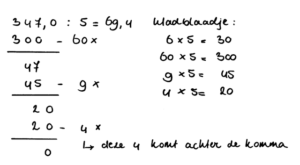 347,0 : 5 = 69,4
300 - 60 x
47
45 - 9 x
20
20 - 4 x
↳ deze 4 komt achter de komma
0
kladblaadje:
6 x 5 = 30
60 x 5 = 300
9 x 5 = 45
4 x 5 = 20